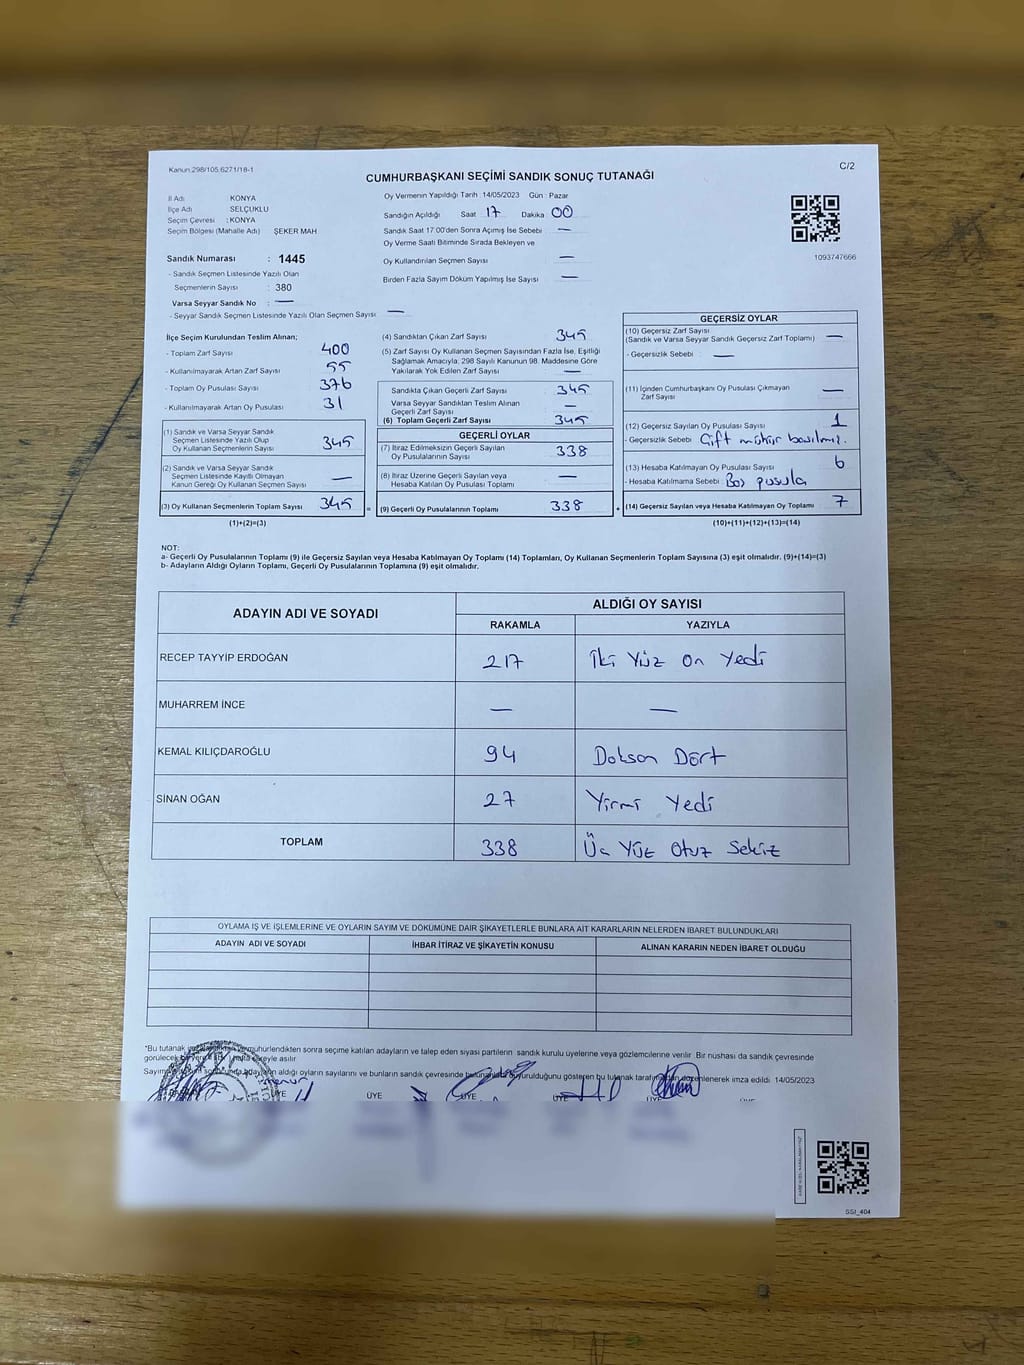 Kanun:298/105,6271/18-1
C/2
CUMHURBAŞKANI SEÇİMİ SANDIK SONUÇ TUTANAĞI
İl Adı : KONYA
İlçe Adı : SELÇUKLU
Seçim Çevresi : KONYA
Seçim Bölgesi (Mahalle Adı) ŞEKER MAH
Sandık Numarası : 1445
- Sandık Seçmen Listesinde Yazılı Olan
Seçmenlerin Sayısı : 380
Varsa Seyyar Sandık No : —
- Seyyar Sandık Seçmen Listesinde Yazılı Olan Seçmen Sayısı : —
Oy Vermenin Yapıldığı Tarih : 14/05/2023 Gün : Pazar
Sandığın Açıldığı Saat 17 Dakika 00
Sandık Saat 17:00'den Sonra Açımış İse Sebebi —
Oy Verme Saati Bitiminde Sırada Bekleyen ve
Oy Kullandırılan Seçmen Sayısı —
Birden Fazla Sayım Döküm Yapılmış İse Sayısı —
1093747666
İlçe Seçim Kurulundan Teslim Alınan;
- Toplam Zarf Sayısı 400
- Kullanılmayarak Artan Zarf Sayısı 55
- Toplam Oy Pusulası Sayısı 376
- Kullanılmayarak Artan Oy Pusulası 31
(1) Sandık ve Varsa Seyyar Sandık
Seçmen Listesinde Yazılı Olup
Oy Kullanan Seçmenlerin Sayısı 345
(2) Sandık ve Varsa Seyyar Sandık
Seçmen Listesinde Kayıtlı Olmayan
Kanun Gereği Oy Kullanan Seçmen Sayısı —
(3) Oy Kullanan Seçmenlerin Toplam Sayısı 345
(1)+(2)=(3)
(4) Sandıktan Çıkan Zarf Sayısı 345
(5) Zarf Sayısı Oy Kullanan Seçmen Sayısından Fazla İse, Eşitliği
Sağlamak Amacıyla; 298 Sayılı Kanunun 98. Maddesine Göre
Yakılarak Yok Edilen Zarf Sayısı —
Sandıkta Çıkan Geçerli Zarf Sayısı 345
Varsa Seyyar Sandıktan Teslim Alınan
Geçerli Zarf Sayısı —
(6) Toplam Geçerli Zarf Sayısı 345
GEÇERLİ OYLAR
(7) İtiraz Edilmeksizin Geçerli Sayılan
Oy Pusulalarının Sayısı 338
(8) İtiraz Üzerine Geçerli Sayılan veya
Hesaba Katılan Oy Pusulaları Toplamı —
= (9) Geçerli Oy Pusulalarının Toplamı 338 +
GEÇERSİZ OYLAR
(10) Geçersiz Zarf Sayısı
(Sandık ve Varsa Seyyar Sandık Geçersiz Zarf Toplamı) —
- Geçersizlik Sebebi : —
(11) İçinden Cumhurbaşkanı Oy Pusulası Çıkmayan
Zarf Sayısı —
(12) Geçersiz Sayılan Oy Pusulası Sayısı 1
- Geçersizlik Sebebi Çift mühür basılmış.
(13) Hesaba Katılmayan Oy Pusulası Sayısı 6
- Hesaba Katılmama Sebebi : Boş pusula
(14) Geçersiz Sayılan veya Hesaba Katılmayan Oy Toplamı 7
(10)+(11)+(12)+(13)=(14)
NOT:
a- Geçerli Oy Pusulalarının Toplamı (9) ile Geçersiz Sayılan veya Hesaba Katılmayan Oy Toplamı (14) Toplamları, Oy Kullanan Seçmenlerin Toplam Sayısına (3) eşit olmalıdır. (9)+(14)=(3)
b- Adayların Aldığı Oyların Toplamı, Geçerli Oy Pusulalarının Toplamına (9) eşit olmalıdır.
ADAYIN ADI VE SOYADI ALDIĞI OY SAYISI
RAKAMLA YAZIYLA
RECEP TAYYİP ERDOĞAN 217 İki Yüz On Yedi
MUHARREM İNCE — —
KEMAL KILIÇDAROĞLU 94 Doksan Dört
SİNAN OĞAN 27 Yirmi Yedi
TOPLAM 338 Üç Yüz Otuz Sekiz
OYLAMA İŞ VE İŞLEMLERİNE VE OYLARIN SAYIM VE DÖKÜMÜNE DAİR ŞİKAYETLERLE BUNLARA AİT KARARLARIN NELERDEN İBARET BULUNDUKLARI
ADAYIN ADI VE SOYADI İHBAR İTİRAZ VE ŞİKAYETİN KONUSU ALINAN KARARIN NEDEN İBARET OLDUĞU
*Bu tutanak mühürlendikten sonra seçime katılan adayların ve talep eden siyasi partilerin sandık kurulu üyelerine veya gözlemcilerine verilir. Bir nüshası da sandık çevresinde
görülecek bir yere süreyle asılır
Sayım adayların aldığı oyların sayılarını ve bunların sandık çevresinde duyurulduğunu gösteren bu tutanak düzenlenerek imza edildi 14/05/2023
ÜYE ÜYE ÜYE ÜYE ÜYE
SSI_404